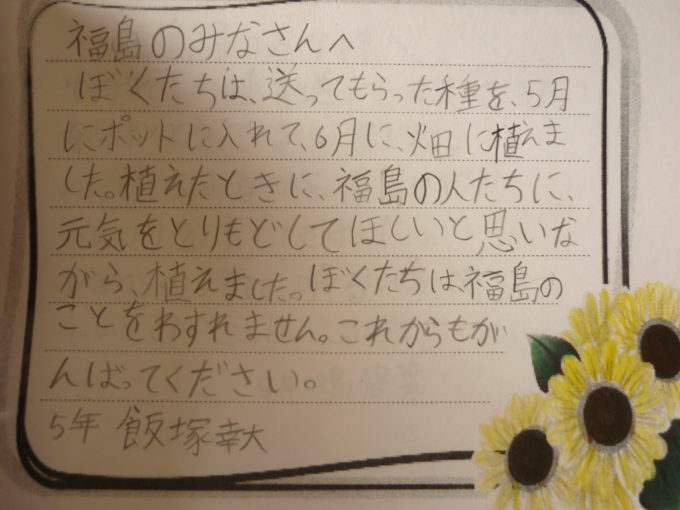 福島のみなさんへ
ぼくたちは、送ってもらった種を、5月
にポットに入れて、6月に、畑に植えま
した。植えたときに、福島の人たちに、
元気をとりもどしてほしいと思いな
がら、植えました。ぼくたちは福島の
ことをわすれません。これからもが
んばってください。
5年 飯塚幸大